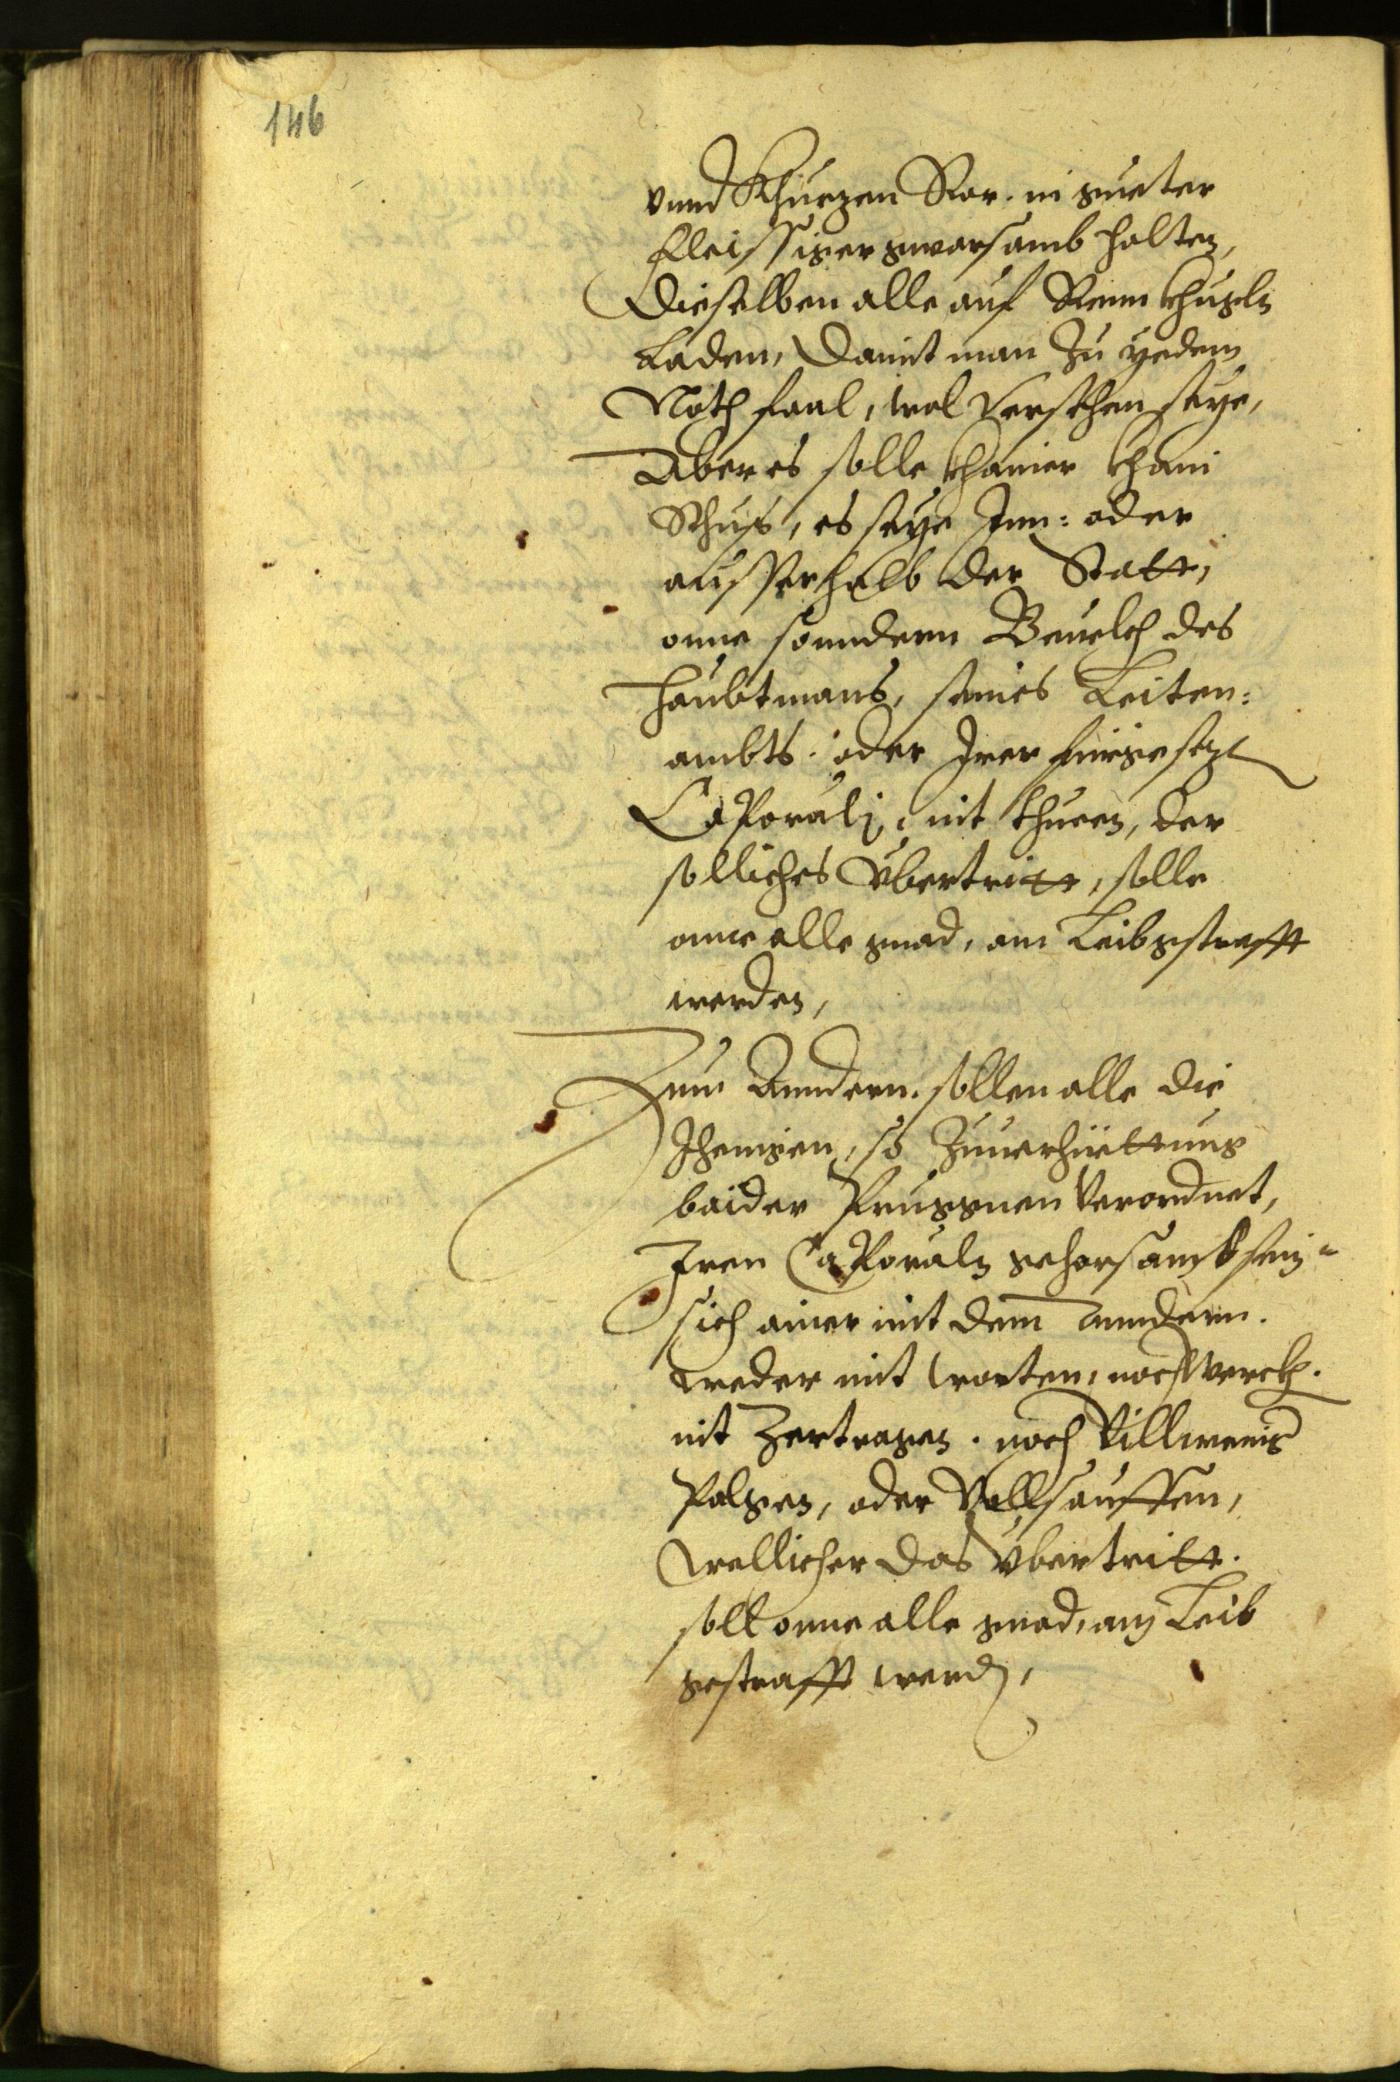 146
vnnd Khurzen Ror. in gueter
fleissiger gwarsamb halten,
Dieselben alle auf Renn khugln
Laden, Damit man Zu yedem
Noth faal, wol Versehen seye,
Aber es solle khainer khain
Schuß, es seye Inn: oder
ausserhalb der Statt,
onne sonndern Beuelch des
haubtmans, seines Leiten:
ambts. oder Irer fürgesezt
Caporalj, nit thuen, der
solliches Vbertritt, solle
onne alle gnad, am Leib gstrafft
werden,
Zum Anndern. sollen alle die
Jhenigen, so Zuuerhüettung
baider Pruggen Verordnet,
Iren Caporaln gehorsamb sein
sich ainer mit dem anndern.
weder mit worten, noch werckh.
nit Zertragen. noch Villwenig
Palgen, oder Vollsauffen,
wellicher das Vbertritt.
soll onne alle gnad, am Leib
gestrafft werden,